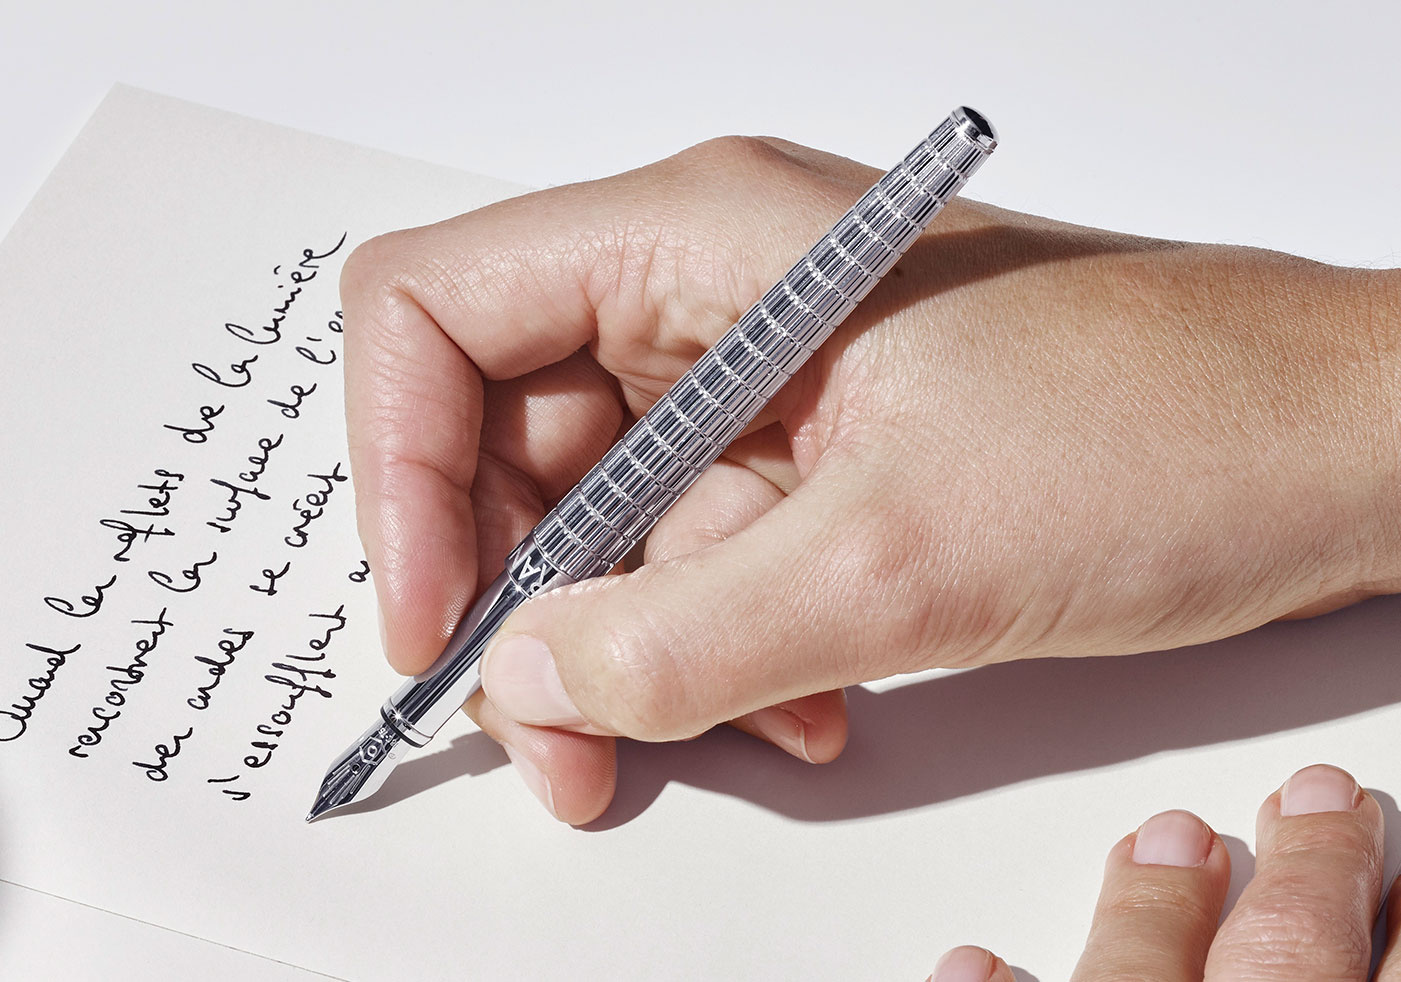 Quand les reflets de la lumière
rencontrent la surface de l'e
des ondes se créent
s'essoufflent a
RA